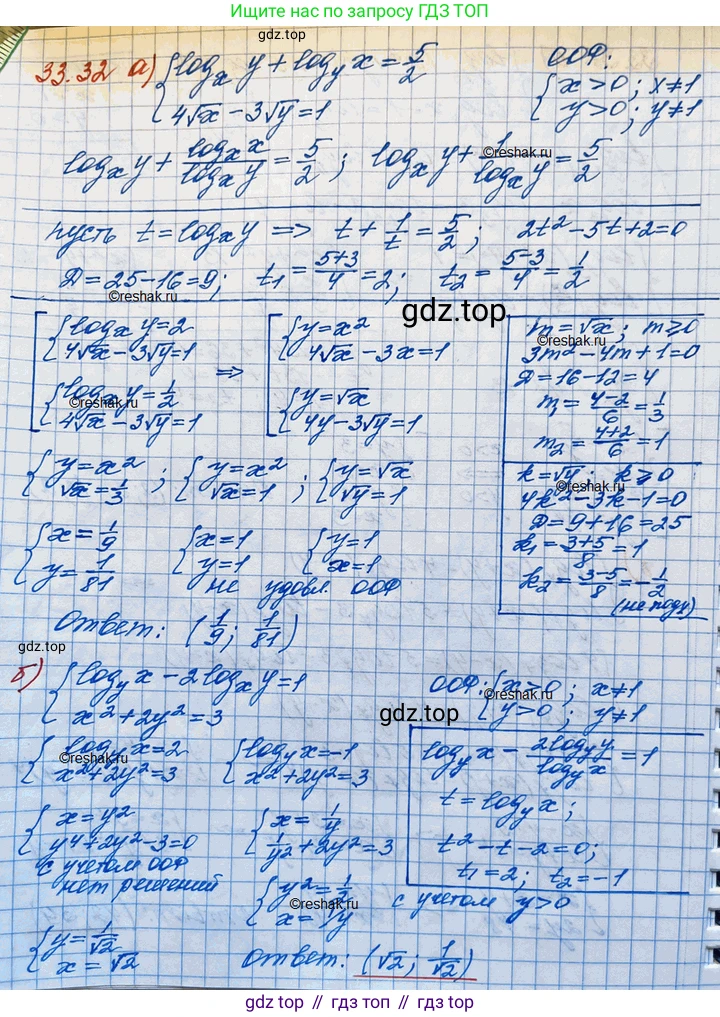 Ищите нас по запросу ГДЗ ТОП
gdz.top
33.32 а) { log_x y + log_y x = 5/2
4√x − 3√y = 1
ООФ:
{ x > 0 ; x ≠ 1
y > 0 ; y ≠ 1
log_x y + log_x x / log_x y = 5/2 ; log_x y + 1 / log_x y = 5/2
©reshak.ru
пусть t = log_x y => t + 1/t = 5/2 ; 2t² − 5t + 2 = 0
Д = 25 − 16 = 9 ; t₁ = (5+3)/4 = 2 ; t₂ = (5−3)/4 = 1/2
©reshak.ru
gdz.top
[ { log_x y = 2
4√x − 3√y = 1
{ log_x y = 1/2
4√x − 3√y = 1
©reshak.ru
=>
[ { y = x²
4√x − 3x = 1
{ y = √x
4y − 3√y = 1
m = √x ; m ≥ 0
3m² − 4m + 1 = 0
©reshak.ru
Д = 16 − 12 = 4
m₁ = (4−2)/6 = 1/3
m₂ = (4+2)/6 = 1
k = √y ; k ≥ 0
©reshak.ru
4k² − 3k − 1 = 0
Д = 9 + 16 = 25
k₁ = (3+5)/8 = 1
k₂ = (3−5)/8 = −1/2
(не подх)
{ y = x²
√x = 1/3 ; { y = x²
√x = 1 ; { y = √x
√y = 1
{ x = 1/9
y = 1/81
{ x = 1
y = 1
{ y = 1
x = 1
не удовл. ООФ
Ответ: (1/9 ; 1/81)
gdz.top
б) { log_y x − 2 log_x y = 1
x² + 2y² = 3
ООФ: { x > 0 ; x ≠ 1
y > 0 ; y ≠ 1
©reshak.ru
gdz.top
{ log_y x = 2
x² + 2y² = 3
©reshak.ru
{ log_y x = −1
x² + 2y² = 3
log_y x − 2log_y y / log_y x = 1
t = log_y x ;
t² − t − 2 = 0 ;
t₁ = 2 ; t₂ = −1
{ x = y²
y⁴ + 2y² − 3 = 0
с учетом ООФ
нет решений
{ x = 1/y
1/y² + 2y² = 3
{ y² = 1/2
x = 1/y
©reshak.ru
с учетом y > 0
{ y = 1/√2
x = √2
Ответ: (√2 ; 1/√2)
gdz.top // гдз топ // гдз.топ